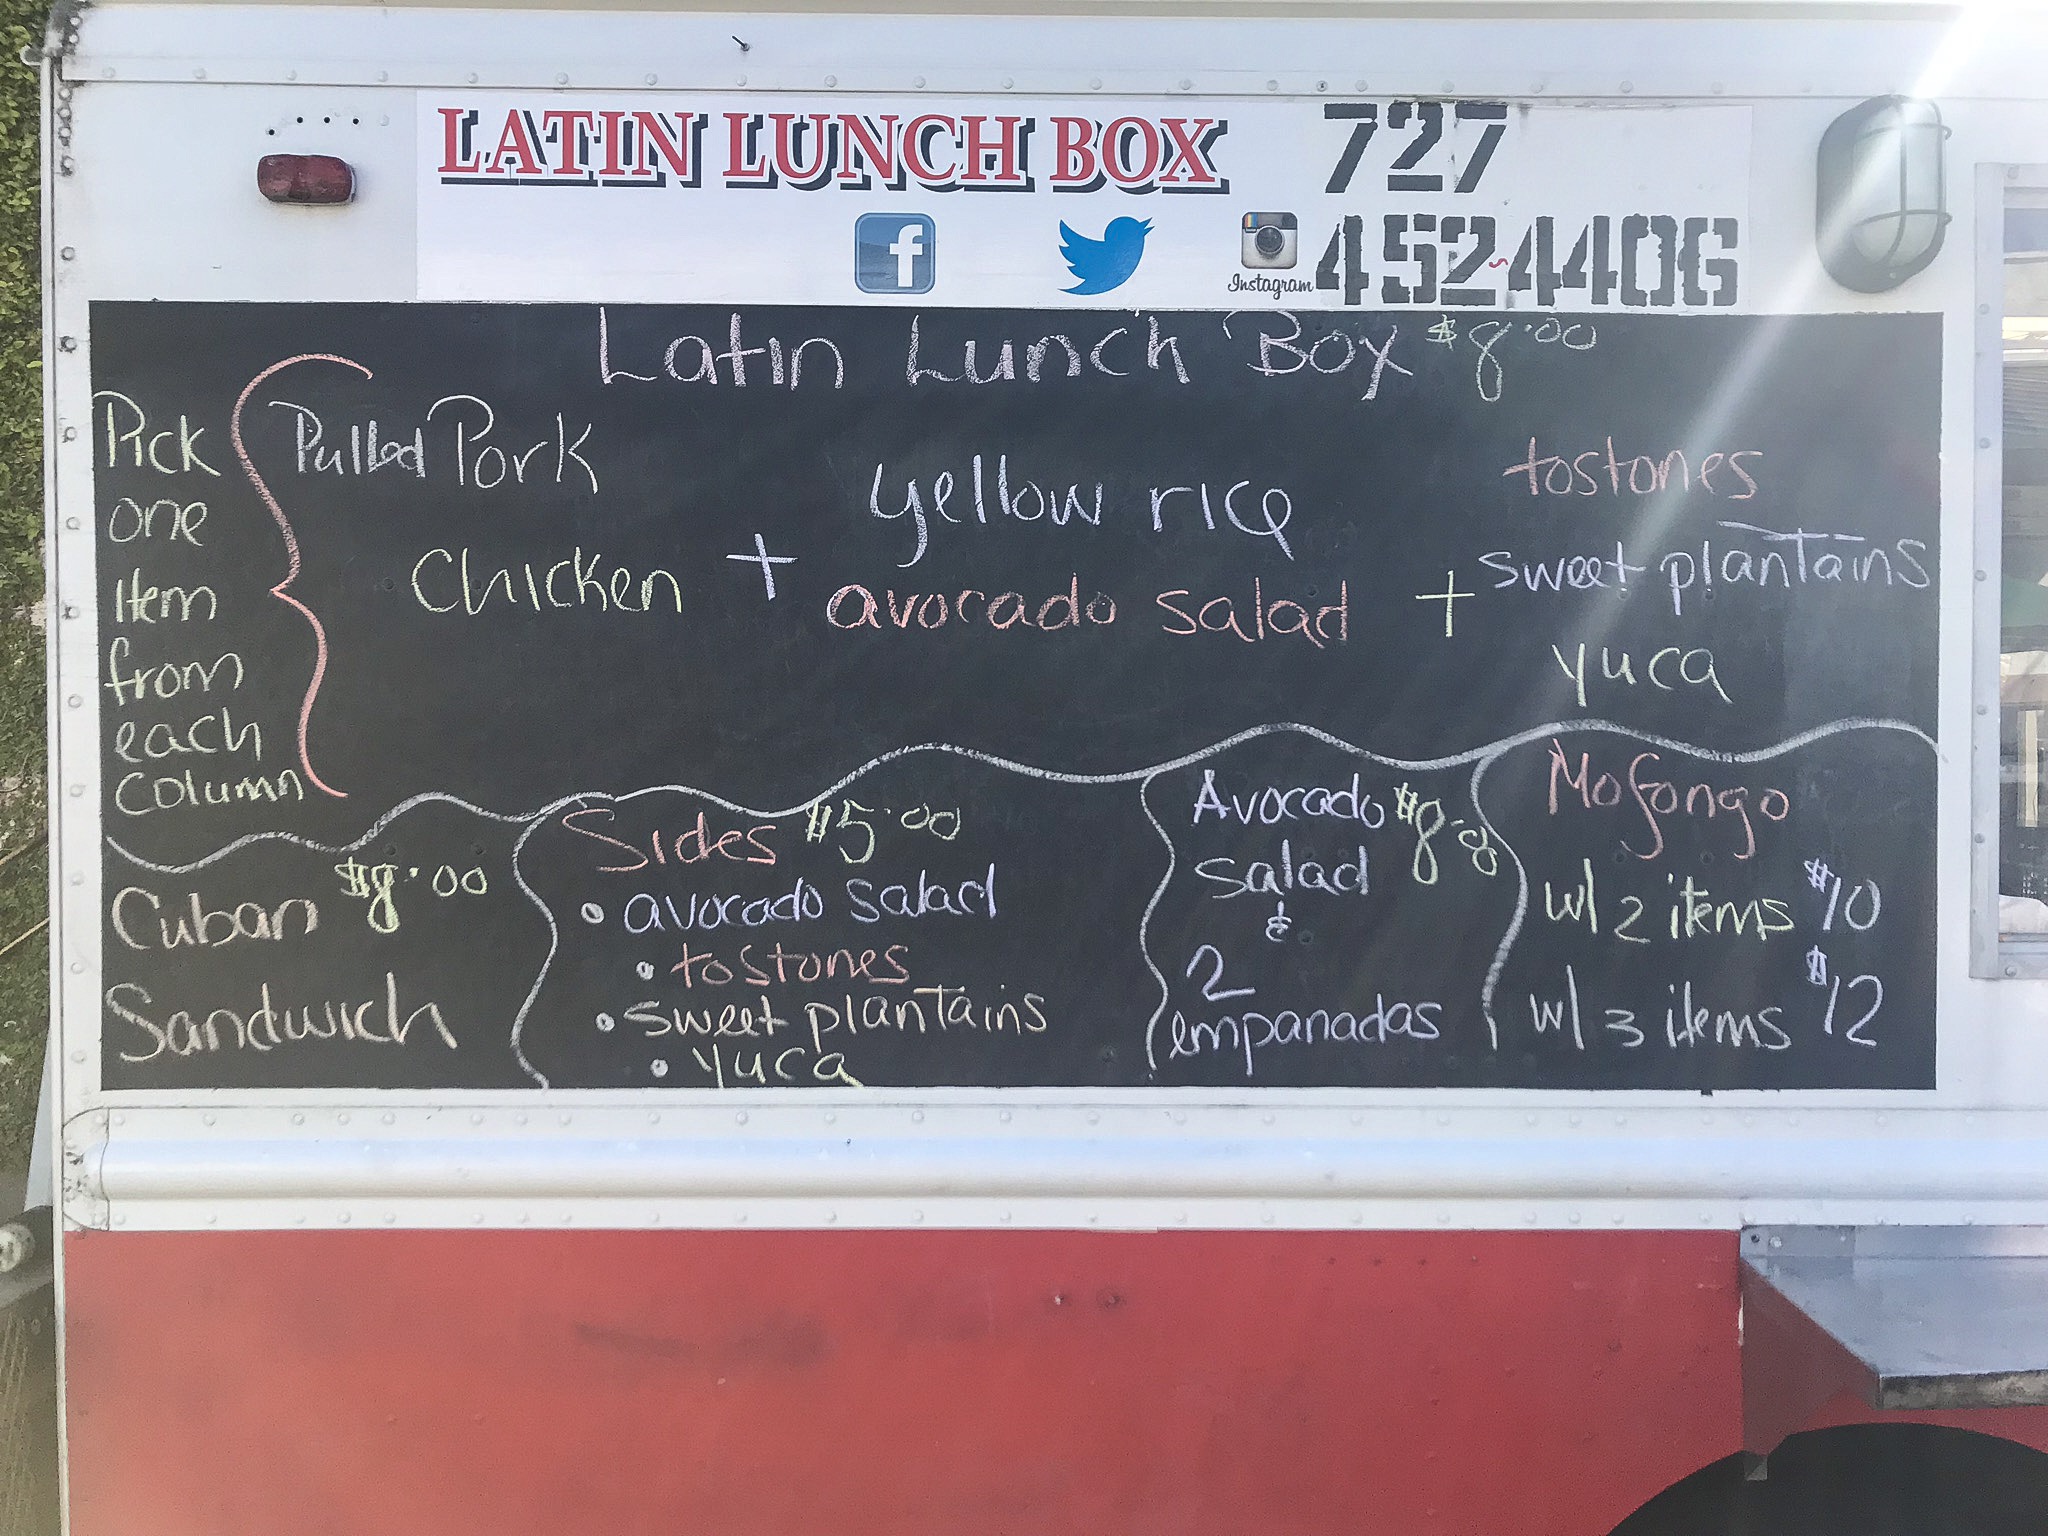 LATIN LUNCH BOX 727
Instagram 452-4406
Latin Lunch Box $8.00
Pick
one
item
from
each
column
Pulled Pork
Chicken
+
yellow rice
avocado salad
+
tostones
sweet plantains
yuca
Cuban $8.00
Sandwich
Sides $5.00
• avocado salad
• tostones
• sweet plantains
• yuca
Avocado $8.00
salad
&
2
empanadas
Mofongo
w/ 2 items $10
w/ 3 items $12